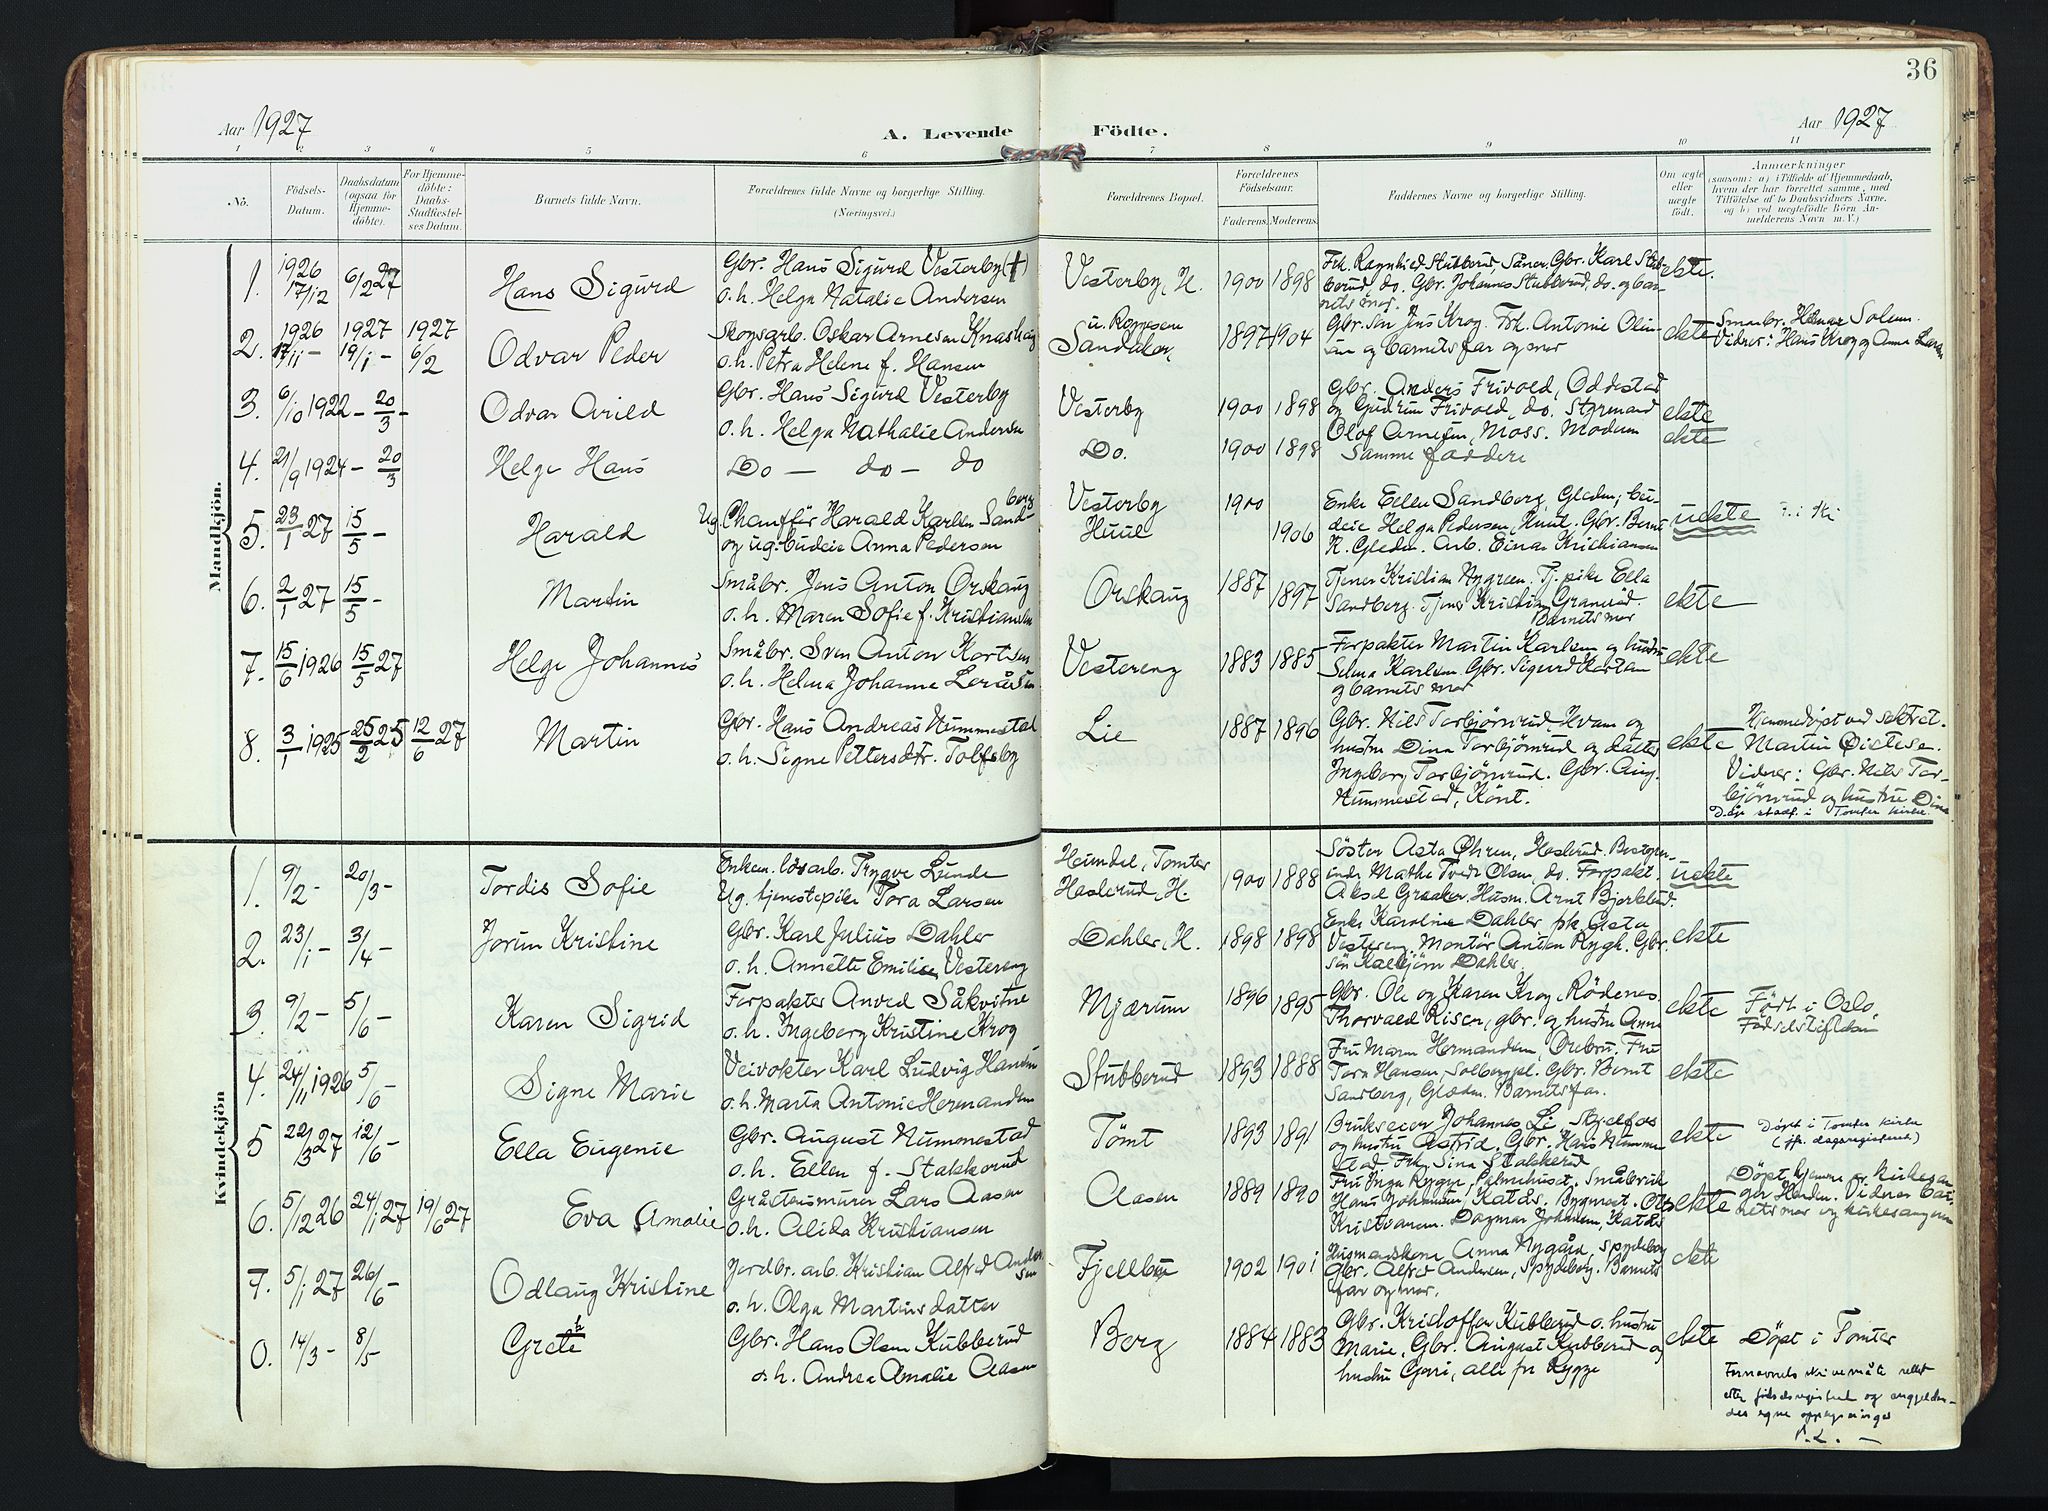 36
Aar 1927
A. Levende Födte.
Aar 1927
1 2 3 4 5 6 7 8 9 10 11
No.
Födsels-Datum.
Daabsdatum (ogsaa for Hjemmedöbte).
For Hjemmedöbte: Daabs-Stadfæstelses Datum.
Barnets fulde Navn.
Forældrenes fulde Navne og borgerlige Stilling.
(Næringsvei.)
Forældrenes Bopæl.
Forældrenes Födselsaar.
Faderens. Moderens.
Faddernes Navne og borgerlige Stilling.
Om ægte eller uægte födt.
Anmærkninger
(saasom: a) i Tilfælde af Hjemmedaab,
hvem der har forrettet samme, med
Tilföielse af to Daabsvidners Navne.
og b) ved uægtefödte Börn An-
melderens Navn m. V.)
Mandkjön.
1. 1926 17/12 6/2 27 Hans Sigurd
Gbr. Hans Sigurd Vesterby (+)
o. h. Helga Natalie Andersen
Vesterby, H. 1900 1898
Frk. Ragnhild Stubberud, Såner. Gbr. Karl Stub-
berud, do. Gbr. Johannes Stubberud, do. og bar-
nets mor.
ekte.
2. 1926 17/11 - 1927 19/1 - 1927 6/2 Odvar Peder
Skogsarb. Oskar Arnesen Knashaug
o. h. Petra Helene f. Hansen
Sandaker, 1897 1904
Gbr. søn Jens Krog. Frk. Antonie
og barnets far og mor
ekte
Smaabr. Solum.
Vidner: Hans Krog og Anna Larsen
3. 6/10 1922 - 20/3 - Odvar Arild
Gbr. Hans Sigurd Vesterby
o. h. Helga Nathalie Andersen
Vesterby 1900 1898
Gbr. Anders Frivold, Oddestad
og Gudrun Frivold, do. Styrmand
Olof Arnesen, Moss. Moderen
ekte
4. 21/9 1924 - 20/3 Helge Hans
Do - do - do
Do. 1900 1898
Samme faddere
ekte
5. 23/1 27 15/5 - Harald
Ug. Chauffør Harald Karlsen Sandberg
og ug. budeie Anna Pedersen
Vesterby 1900
Huul 1906
Enke Ellen Sandberg, Gleden; bu-
deie Helga Pedersen, Huul. Gbr. Bernt
K. Gleden. Arb. Einar Kristiansen
uekte
6. 2/1 27 15/5 - Martin
Småbr. Jens Anton Orskaug
o. h. Maren Sofie f. Kristiansen
Orskaug 1887 1897
Tjener Kristian Nygreen. Tj. pike Ella
Sandberg. Tjener Kristian Granerud.
Barnets mor
ekte
7. 15/6 1926 15/5 27 Helge Johannes
Småbr. Sven Anton Kortsen
o. h. Helma Johanne
Vestereng 1883 1885
Forpakter Martin Karlsen og hustru
Selma Karlsen. Gbr. Sigurd
og barnets mor
ekte
8. 3/1 1925 25/2 25 12/6 27 Martin
Gbr. Hans Andreas Nummestad
o. h. Signe Pettersdtr. Tolfsby
Lie 1887 1896
Gbr. Nils Torbjørnrud, Hvam og
hustru Dina Torbjørnrud og datter
Ingeborg Torbjørnrud. Gbr. Aug.
Nummestad, Tömt.
ekte
Hjemmedøpt ved sekret.
Martin Øistesen.
Vidner: Gbr. Nils Tor-
bjørnrud og hustru Dina
Dåp stadf. i Tomter kirke.
Kvindekjön
1. 9/2 - 20/3 - Tordis Sofie
Enkem. løsarb. Trygve Lunde
Ug. tjenestepike Tora Larsen
Heimdal, Tomter
Haslerud, H. 1900 1888
Söster Asta Øhren, Haslerud. Bestyrer-
inde Mathe Tvedt Olsen, do. Forpakt.
Aksel Graaker. Husm. Arnt Bjerklund.
uekte
2. 23/1 - 3/4 - Jorun Kristine
Gbr. Karl Julius Dahler
o. h. Annette Emilie Vestereng
Dahler, H. 1898 1898
Enke Karoline Dahler, pk. Asta
Vestereng. Montør Anton Rygh. Gbr.
søn Dahler.
ekte
3. 9/2 - 5/6 - Karen Sigrid
Forpakter Anved Såkvitne
o. h. Ingeborg Kristine Krog
Mjærum 1896 1895
Gbr. Ole og Karen Krog, Rödenes.
Thorvald Risen, gbr. og hustru Anna
ekte
Født i Oslo,
Fødselsstiftelsen
4. 24/11 1926 5/6 - Signe Marie
Veivokter Karl Ludvig Hansen
o. h. Marta Antonie Hermansen
Stubberud 1893 1888
Fru Maren Hermansen, Örebro. Fru
Tora Hansen, Solbergpl. Gbr. Bernt
Sandberg, Gleden. Barnets far.
ekte
5 22/3 27 12/6 - Ella Eugenie
Gbr. August Nummestad
o. h. Ellen f. Stakkerud
Tømt 1893 1891
Brukseier Johannes Li, Skjelfos
og hustru Astrid. Gbr. Hans Numme-
stad. Frk. Sina Stakkerud
ekte
Døpt i Tomter kirke
(jfr. dagsregisteret)
6. 5/12 26 24/1 27 19/6 27 Eva Amalie
Gråstensmurer Lars Aasen
o. h. Alida Kristiansen
Aasen 1889 1890
Fru Inga Rygge, Palmehuset. Småbruk.
Hans Johansen, Katås. Bygmest. Olaf
Kristiansen. Dagmar Johansen, Katås
ekte
Døpt hjemme av kirkesan-
ger Hersden. Vidner: bar-
nets mor og kirkesangeren
7. 5/1 27 26/6 - Odlaug Kristine
Jordbr. arb. Kristian Alfred Andersen
o. h. Olga Martinsdatter
Fjellbu 1902 1901
Husmandskone Anna Nygård, Spydeberg
Gbr. Alfred Andersen, Spydeberg. Barnets
far og mor.
ekte
0. 14/3 - 8/5 - Grete
Gbr. Hans Olsen Kubberud
o. h. Andrea Amalie Aasen
Berg 1884 1883
Gbr. Kristoffer Kubberud o. hustru
Marie, Gbr. August Kubberud og
hustru Gjøri, alle fr Rygge
ekte
Døpt i Tomter
Fornavnets skrivemåte rettet
etter fødselsregistret og angjelden-
des egne oppgivninger